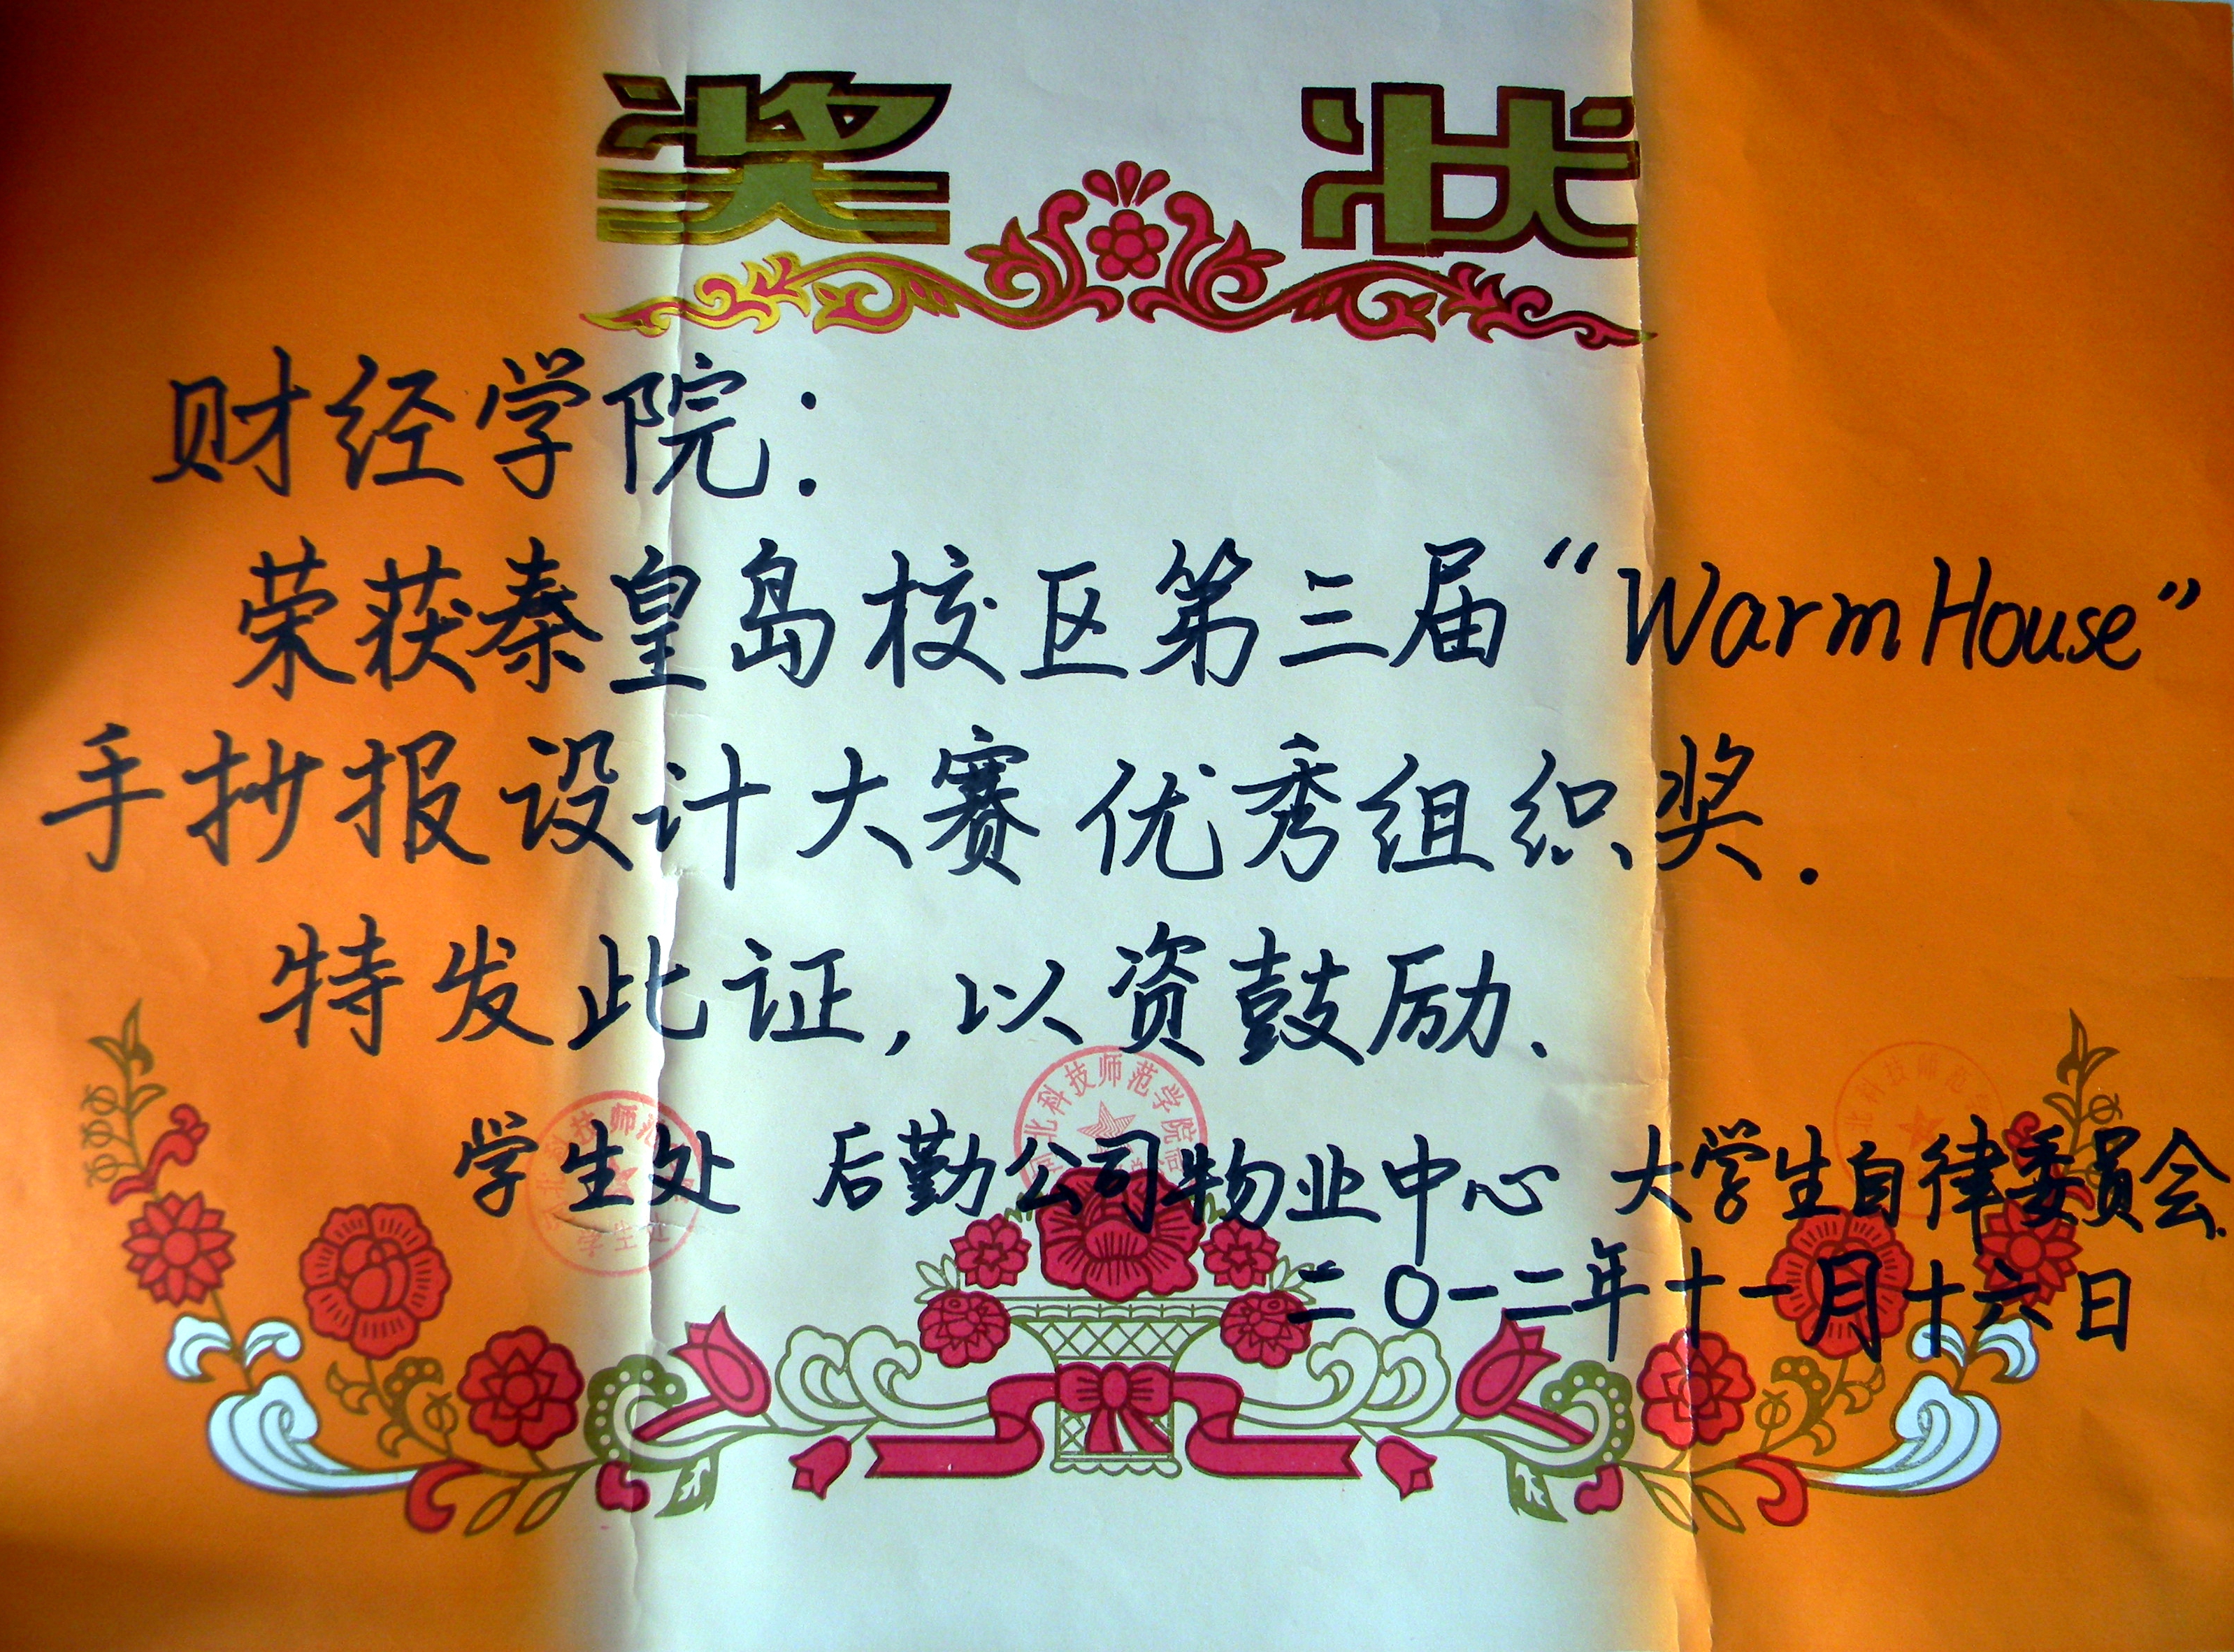 奖状
财经学院：
荣获秦皇岛校区第三届“Warm House”
手抄报设计大赛优秀组织奖.
特发此证,以资鼓励.
北科技师范学院
学生处
北科技师范
学生处 后勤公司物业中心 大学生自律委员会.
二〇一二年十一月十六日